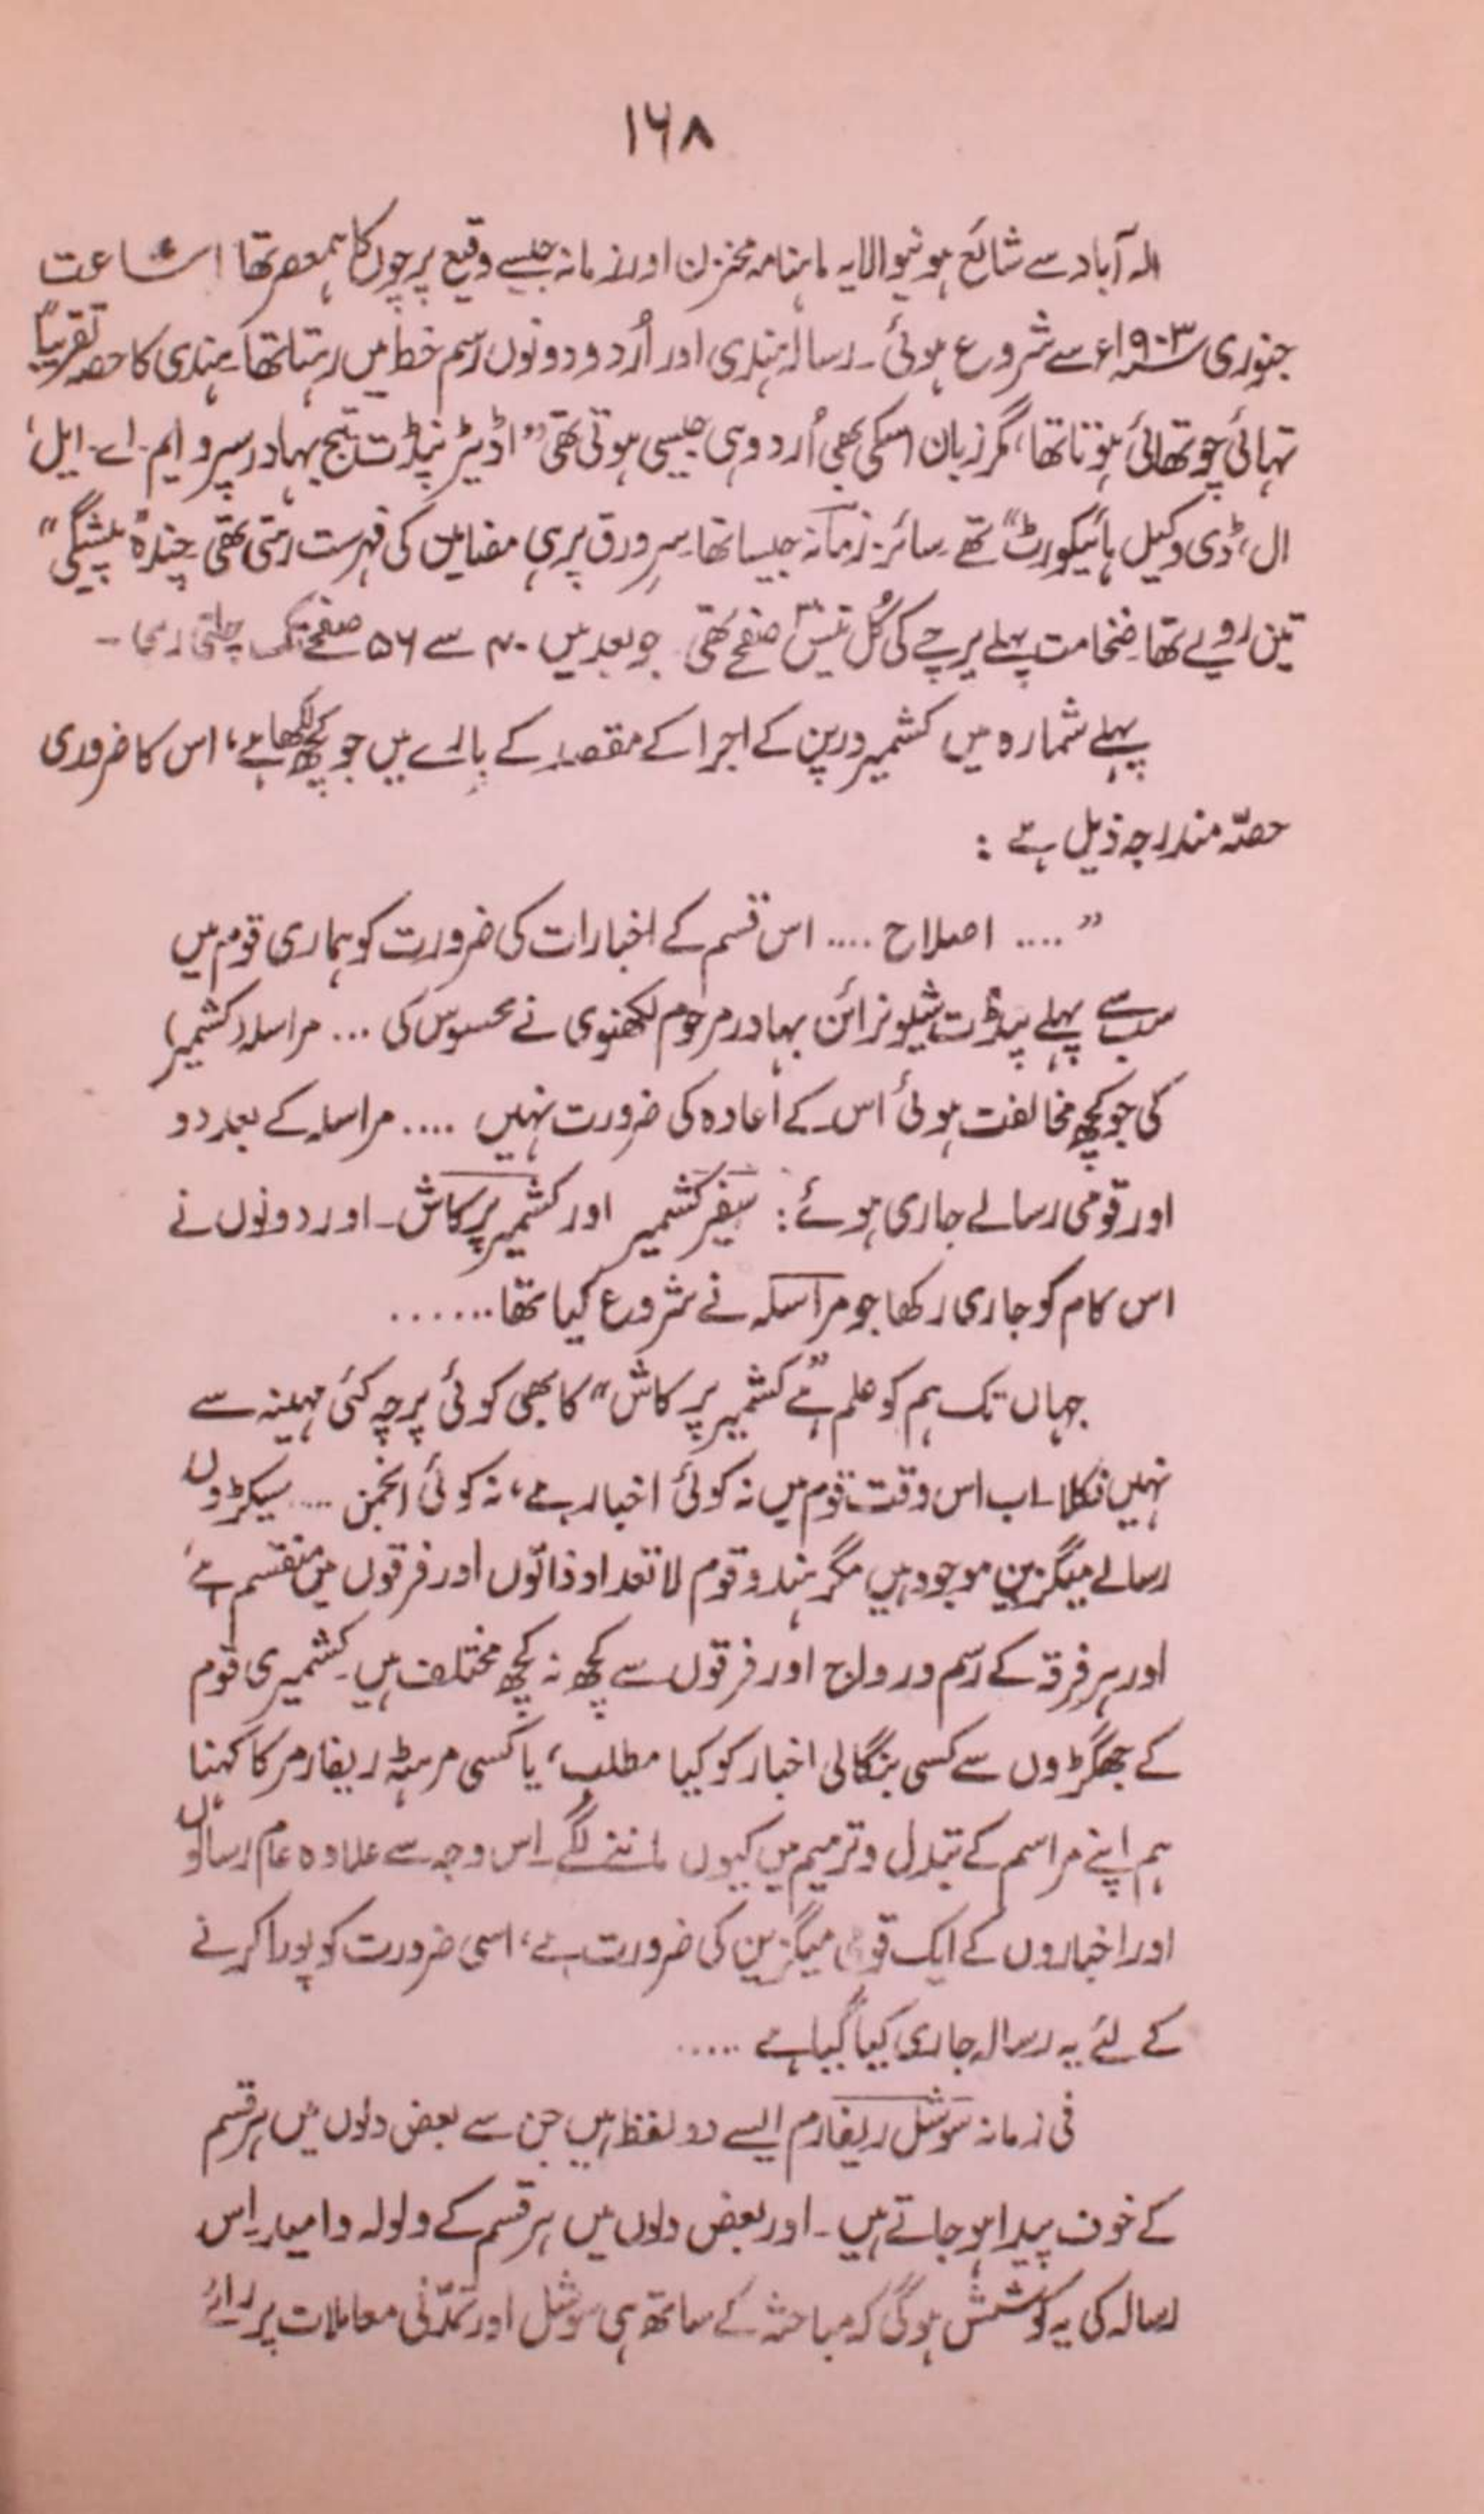 ۱۶۸
الہ آباد سے شائع ہونیوالا یہ ماہنامہ مخزن اور زمانہ جیسے وقیع پرچوں کا ہمعصر تھا اشاعت
جنوری ۱۹۰۳ء سے شروع ہوئی ۔ رسالہ ہندی اور اُردو دونوں رسم خط میں رہتا تھا ۔ ہندی کا حصہ تقریباً
تہائی چوتھائی ہوتا تھا، مگر زبان اسکی بھی اُردو ہی جیسی ہوتی تھی ”اڈیٹر پنڈت تیج بہادر سپرو ایم۔ اے۔ ایل،
ال، ڈی وکیل ہائیکورٹ“ تھے ۔ سائز زمانہ جیسا تھا سرِورق پر ہی مضامین کی فہرست رہتی تھی ۔ چندہ ”پیشگی“
تین روپے تھا ۔ ضخامت پہلے پرچے کی کُل تیس صفحے تھی جو بعد میں ۴۰ سے ۵۶ صفحے تک چلتی رہی ۔
پہلے شمارہ میں کشمیر درپن کے اجرا کے مقصد کے بارے میں جو کچھ لکھا ہے، اس کا ضروری
حصّہ مندرجہ ذیل ہے :
” .... اصلاح .... اس قسم کے اخبارات کی ضرورت کو ہماری قوم میں
سب سے پہلے پنڈت شیونرائن بہادر مرحوم لکھنوی نے محسوس کی ... مراسلہ (کشمیر)
کی جو کچھ مخالفت ہوئی اس کے اعادہ کی ضرورت نہیں .... مراسلہ کے بعد دو
اور قومی رسالے جاری ہوئے : سفیر کشمیر اور کشمیر پرکاش ۔ اور دونوں نے
اس کام کو جاری رکھا جو مراسلہ نے شروع کیا تھا ......
جہاں تک ہم کو علم ہے ”کشمیر پرکاش“ کا بھی کوئی پرچہ کئی مہینہ سے
نہیں نکلا ۔ اب اس وقت قوم میں نہ کوئی اخبار ہے، نہ کوئی انجمن .... سیکڑوں
رسالے میگزین موجود ہیں مگر ہندو قوم لاتعداد ذاتوں اور فرقوں میں منقسم ہے،
اور ہر فرقہ کے رسم و رواج اور فرقوں سے کچھ نہ کچھ مختلف ہیں ۔ کشمیری قوم
کے جھگڑوں سے کسی بنگالی اخبار کو کیا مطلب، یا کسی مرہٹہ ریفارمر کا کہنا
ہم اپنے مراسم کے تبدل و ترمیم میں کیوں ماننے لگے ۔ اِس وجہ سے علاوہ عام رسالوں
اور اخباروں کے ایک قومی میگزین کی ضرورت ہے، اسی ضرورت کو پورا کرنے
کے لئے یہ رسالہ جاری کیا گیا ہے .....
فی زمانہ سوشل ریفارم ایسے دو لفظ ہیں جن سے بعض دلوں میں ہر قسم
کے خوف پیدا ہو جاتے ہیں ۔ اور بعض دلوں میں ہر قسم کے ولولہ و امید ۔ اِس
رسالہ کی یہ کوشش ہوگی کہ مباحثہ کے ساتھ ہی سوشل اور تمدّنی معاملات پر رائے